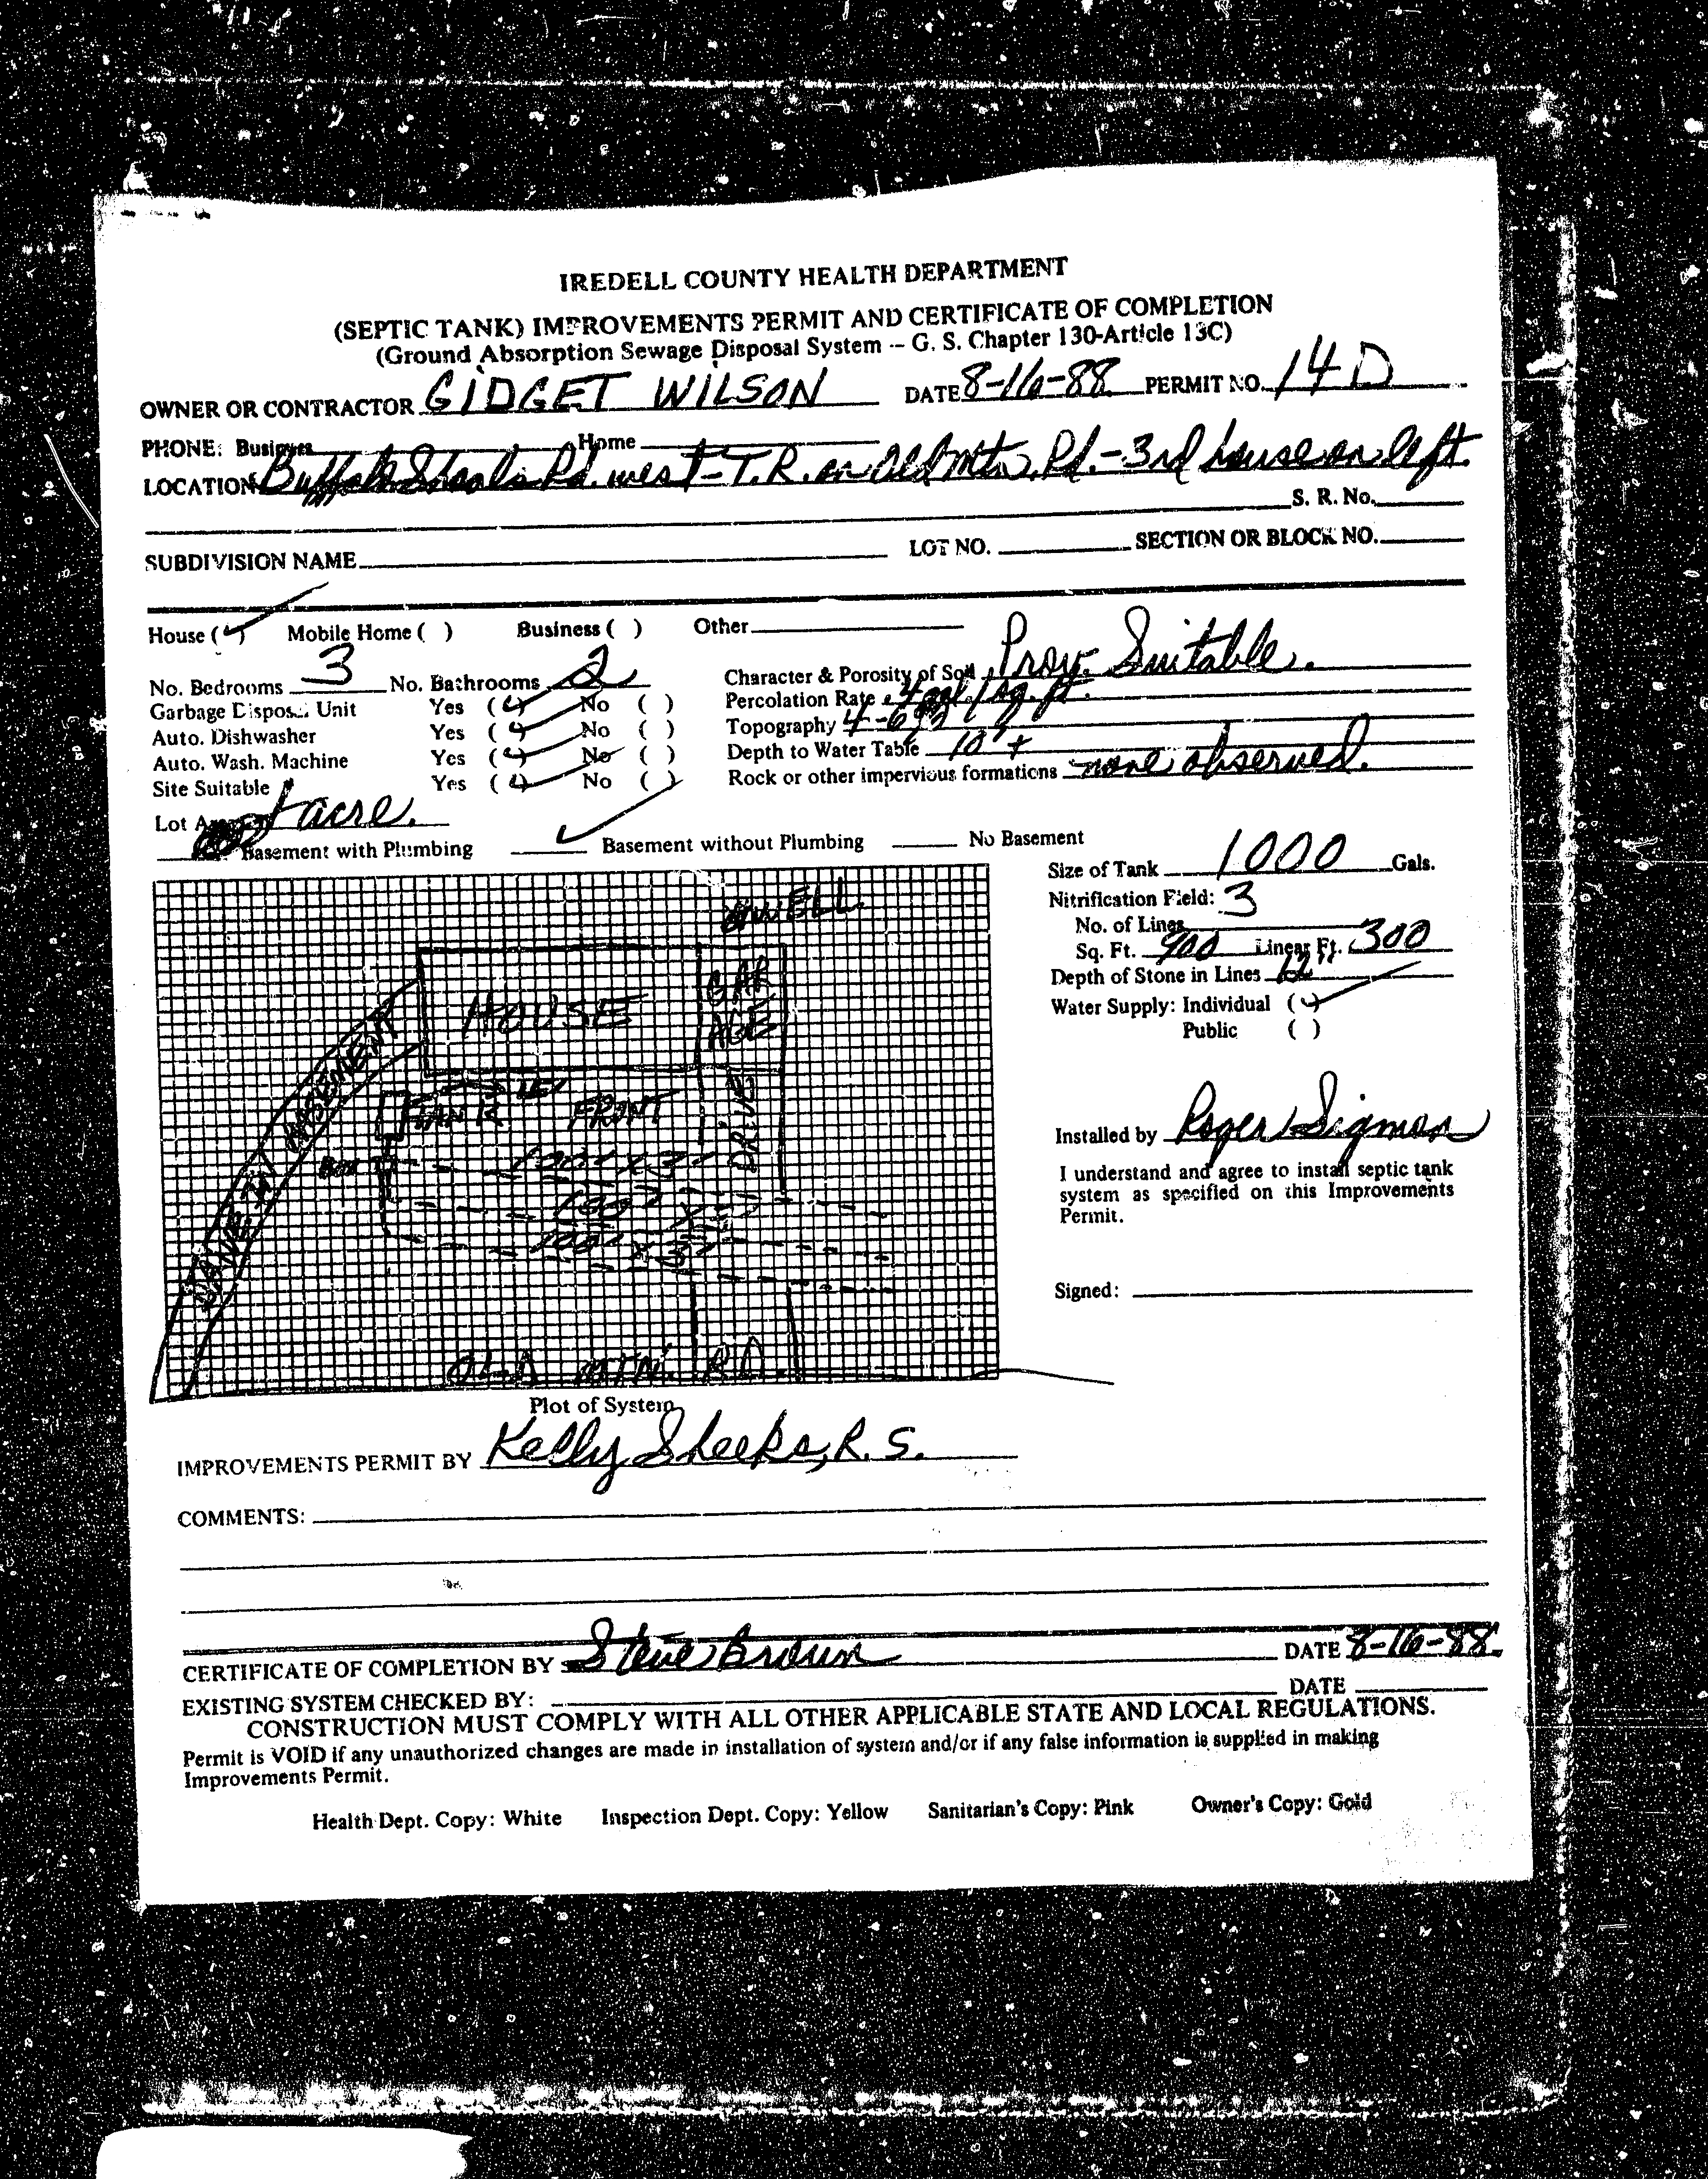 IREDELL COUNTY HEALTH DEPARTMENT
(SEPTIC TANK) IMPROVEMENTS PERMIT AND CERTIFICATE OF COMPLETION
(Ground Absorption Sewage Disposal System -- G. S. Chapter 130-Article 13C)
OWNER OR CONTRACTOR GIDGET WILSON DATE 8-16-88 PERMIT NO. 14 D
PHONE: Business Home
LOCATION Buffalo Shoals Rd. west - T.R. on Old Mtn. Rd. - 3rd house on left.
S. R. No.
SUBDIVISION NAME LOT NO. SECTION OR BLOCK NO.
House ( ) Mobile Home ( ) Business ( ) Other
No. Bedrooms 3 No. Bathrooms 2 Character & Porosity of Soil Prov. Suitable.
Garbage Disposal Unit Yes ( ) No ( ) Percolation Rate .4 gal/sq. ft.
Auto. Dishwasher Yes ( ) No ( ) Topography 4-6%
Auto. Wash. Machine Yes ( ) No ( ) Depth to Water Table 10' +
Site Suitable Yes ( ) No ( ) Rock or other impervious formations none observed.
Lot Area 1 acre.
Basement with Plumbing Basement without Plumbing No Basement
Size of Tank 1000 Gals.
Nitrification Field: 3
No. of Lines
Sq. Ft. 900 Linear Ft. 300
Depth of Stone in Lines 12"
Water Supply: Individual ( )
Public ( )
WELL
HOUSE
GAR
AGE
TANK
15'
FRONT
DRIVE
Box
100' x 3'
100'
100' x 3'
EASEMENT
OLD MTN. RD.
Installed by Roger Sigmon
I understand and agree to install septic tank
system as specified on this Improvements
Permit.
Signed:
Plot of System
IMPROVEMENTS PERMIT BY Kelly Sheeks, R. S.
COMMENTS:
CERTIFICATE OF COMPLETION BY Steve Brown DATE 8-16-88.
EXISTING SYSTEM CHECKED BY: DATE
CONSTRUCTION MUST COMPLY WITH ALL OTHER APPLICABLE STATE AND LOCAL REGULATIONS.
Permit is VOID if any unauthorized changes are made in installation of system and/or if any false information is supplied in making
Improvements Permit.
Health Dept. Copy: White Inspection Dept. Copy: Yellow Sanitarian's Copy: Pink Owner's Copy: Gold